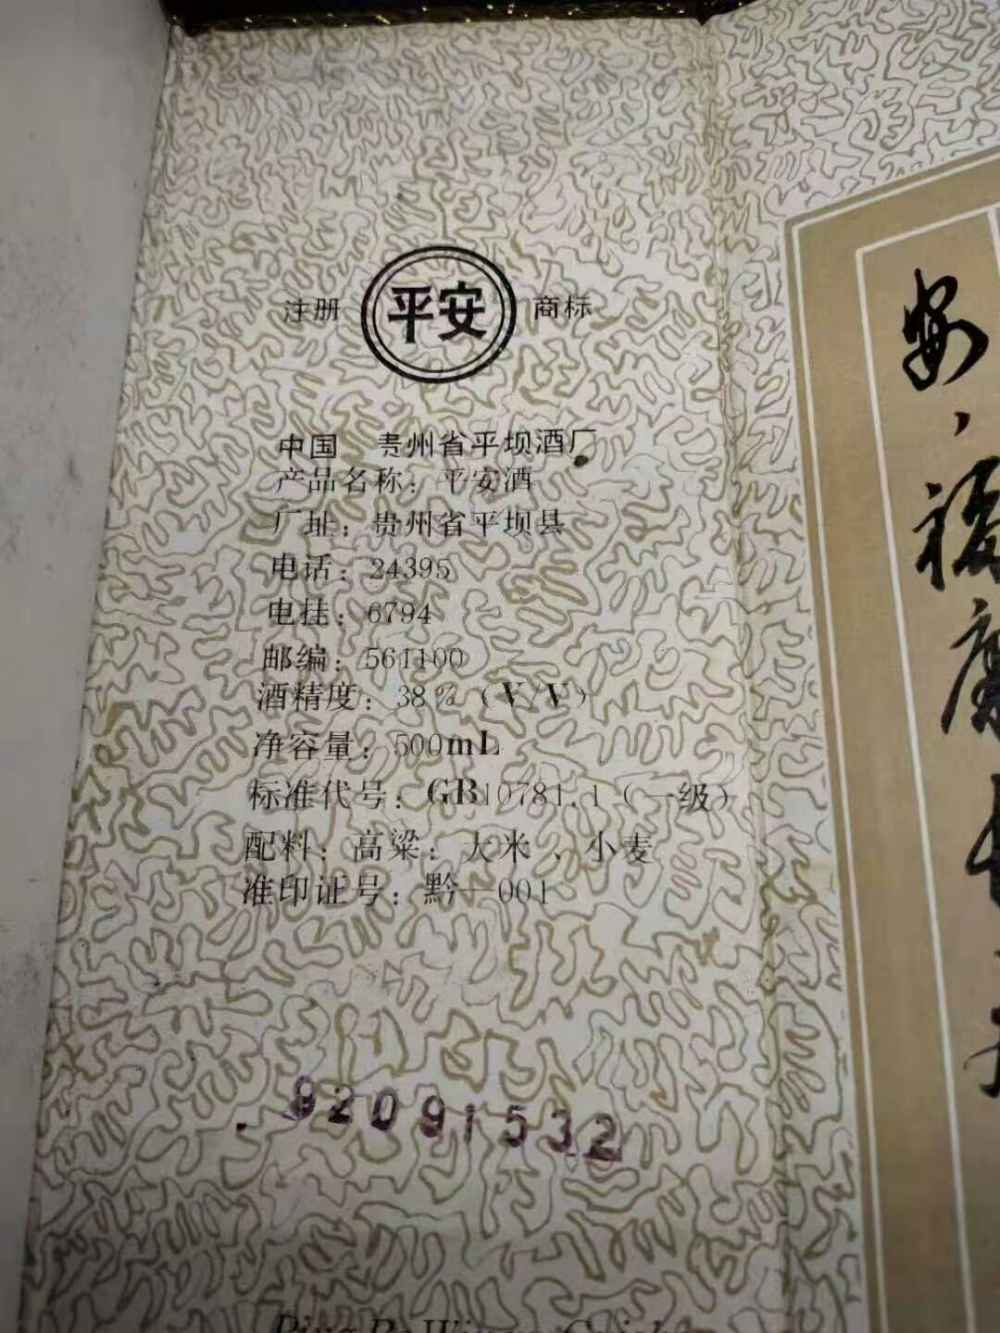 注册 平安 商标
中国 贵州省平坝酒厂
产品名称：平安酒
厂址：贵州省平坝县
电话：24395
电挂：6794
邮编：561100
酒精度：38%（V/V）
净容量：500mL
标准代号：GB10781.1（一级）
配料：高粱：大米、小麦
准印证号：黔—001
92091532
安、福
康